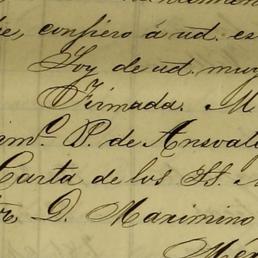 confiero á ud. es
Soy de ud. muy
Firmada. M
P. de Ansvale
Carta de los SS. M
D. Maximino
Méx